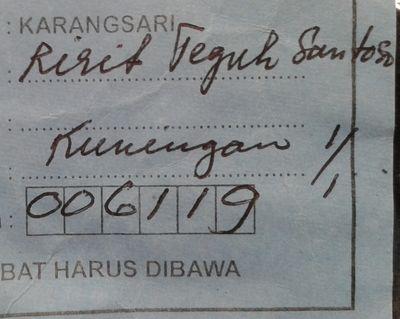 : KARANGSARI
: Ririt Teguh Santoso
:
: Kuningan 1/1
: 006119
BAT HARUS DIBAWA